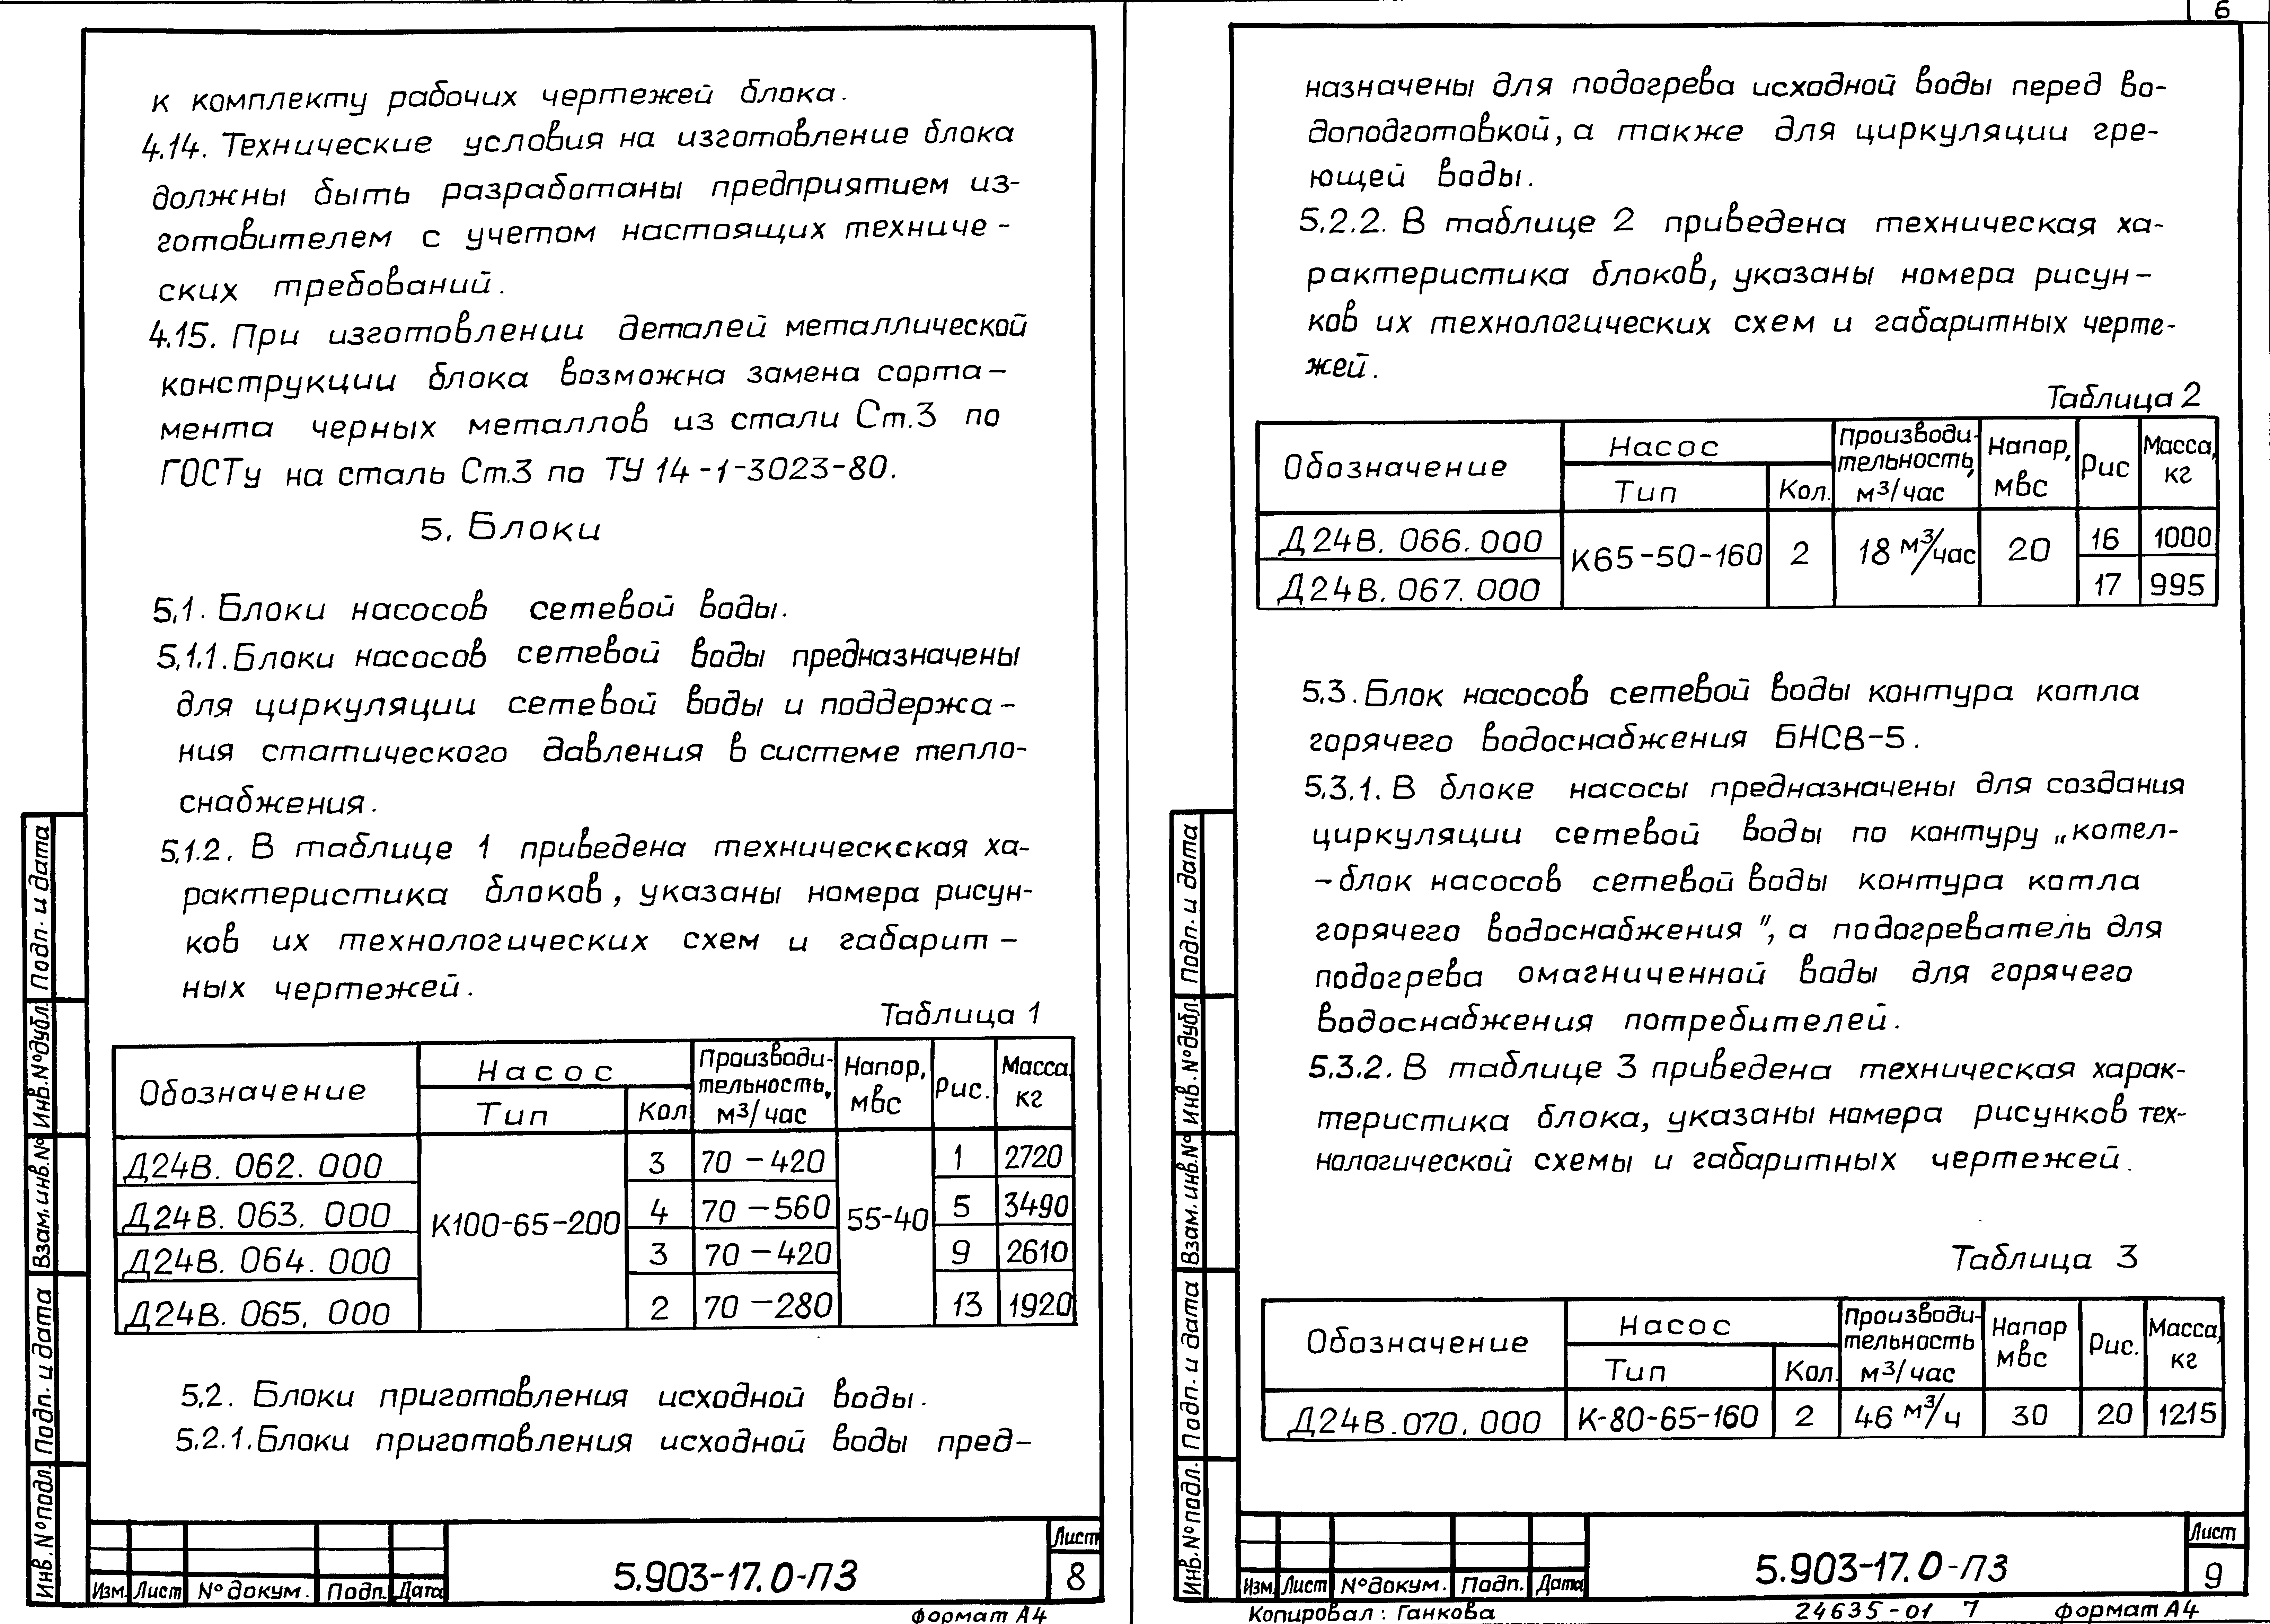 6
к комплекту рабочих чертежей блока.
4.14. Технические условия на изготовление блока
должны быть разработаны предприятием из-
готовителем с учетом настоящих техниче-
ских требований.
4.15. При изготовлении деталей металлической
конструкции блока возможна замена сорта-
мента черных металлов из стали Ст.3 по
ГОСТу на сталь Ст.3 по ТУ 14-1-3023-80.
5. Блоки
5.1. Блоки насосов сетевой воды.
5.1.1. Блоки насосов сетевой воды предназначены
для циркуляции сетевой воды и поддержа-
ния статического давления в системе тепло-
снабжения.
5.1.2. В таблице 1 приведена техническская ха-
рактеристика блоков, указаны номера рисун-
ков их технологических схем и габарит-
ных чертежей.
Таблица 1
Обозначение Насос Производи- Напор, Рис. Масса,
тельность, мвс кг
Тип Кол м3/час
Д24В.062.000 К100-65-200 3 70-420 55-40 1 2720
Д24В.063.000 4 70-560 5 3490
Д24В.064.000 3 70-420 9 2610
Д24В.065.000 2 70-280 13 1920
5.2. Блоки приготовления исходной воды.
5.2.1. Блоки приготовления исходной воды пред-
Инв.№подл. Подп. и дата Взам.инв.№ Инв.№дубл. Подп. и дата
Изм. Лист №докум. Подп. Дата
5.903-17.0-ПЗ
Лист
8
формат А4
назначены для подогрева исходной воды перед во-
доподготовкой, а также для циркуляции гре-
ющей воды.
5.2.2. В таблице 2 приведена техническая ха-
рактеристика блоков, указаны номера рисун-
ков их технологических схем и габаритных черте-
жей.
Таблица 2
Обозначение Насос Производи- Напор, Рис Масса,
тельность, мвс кг
Тип Кол. м3/час
Д24В.066.000 К65-50-160 2 18 м3/час 20 16 1000
Д24В.067.000 17 995
5.3. Блок насосов сетевой воды контура котла
горячего водоснабжения БНСВ-5.
5.3.1. В блоке насосы предназначены для создания
циркуляции сетевой воды по контуру „котел-
-блок насосов сетевой воды контура котла
горячего водоснабжения", а подогреватель для
подогрева омагниченной воды для горячего
водоснабжения потребителей.
5.3.2. В таблице 3 приведена техническая харак-
теристика блока, указаны номера рисунков тех-
нологической схемы и габаритных чертежей.
Таблица 3
Обозначение Насос Производи- Напор Рис. Масса,
тельность мвс кг
Тип Кол. м3/час
Д24В.070.000 К-80-65-160 2 46 м3/ч 30 20 1215
Инв.№подл. Подп. и дата Взам.инв.№ Инв.№дубл. Подп. и дата
Изм. Лист №докум. Подп. Дата
5.903-17.0-ПЗ
Лист
9
Копировал: Ганкова 24635-01 7 формат А4